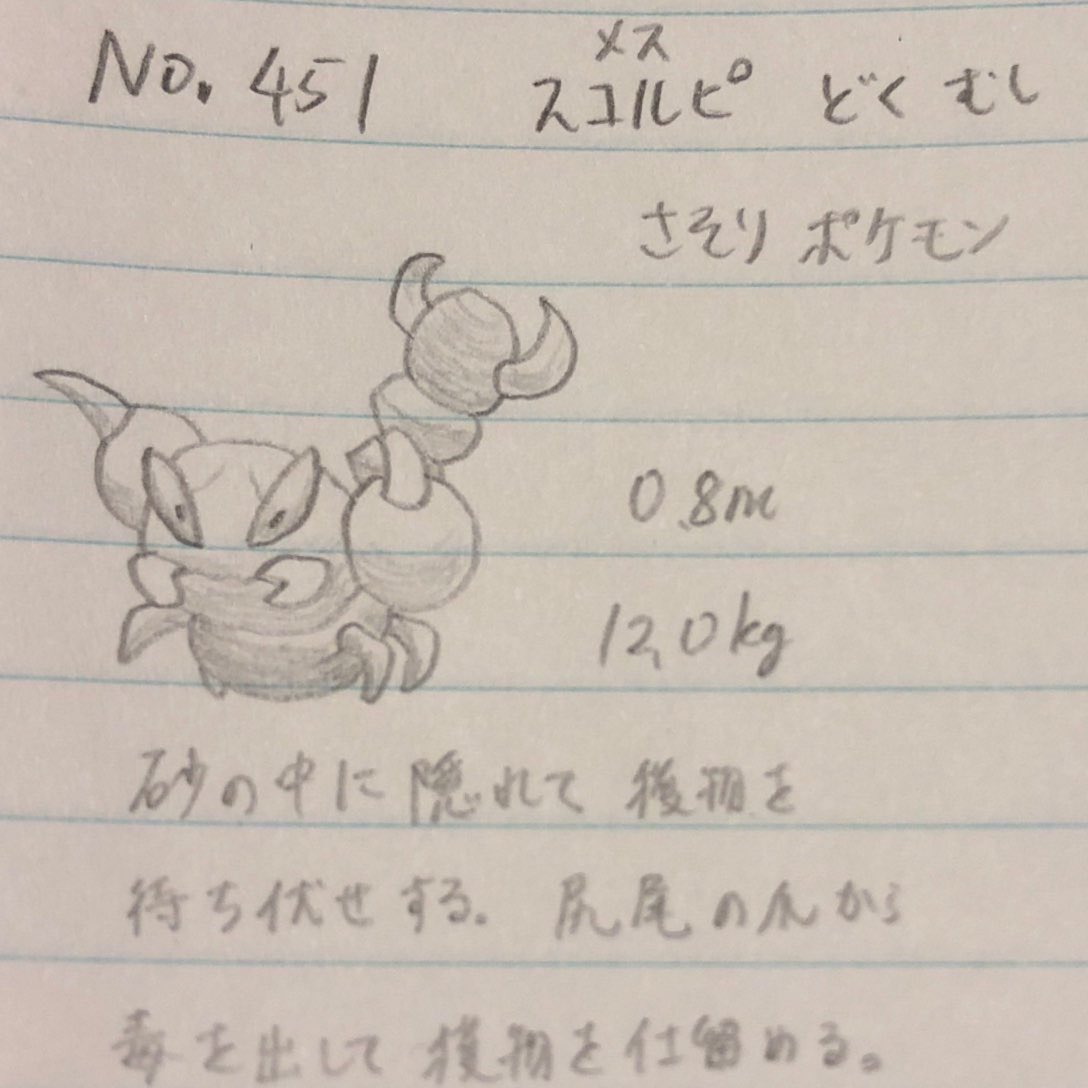 No. 451 メス
スコルピ どく むし
さそり ポケモン
0.8m
12.0kg
砂の中に隠れて獲物を
待ち伏せする。尻尾の爪から
毒を出して獲物を仕留める。